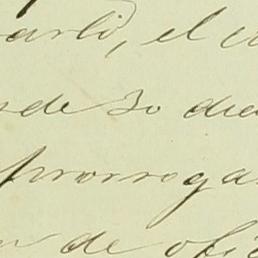 arli, el
de 30 dia
prorroga
de ofi